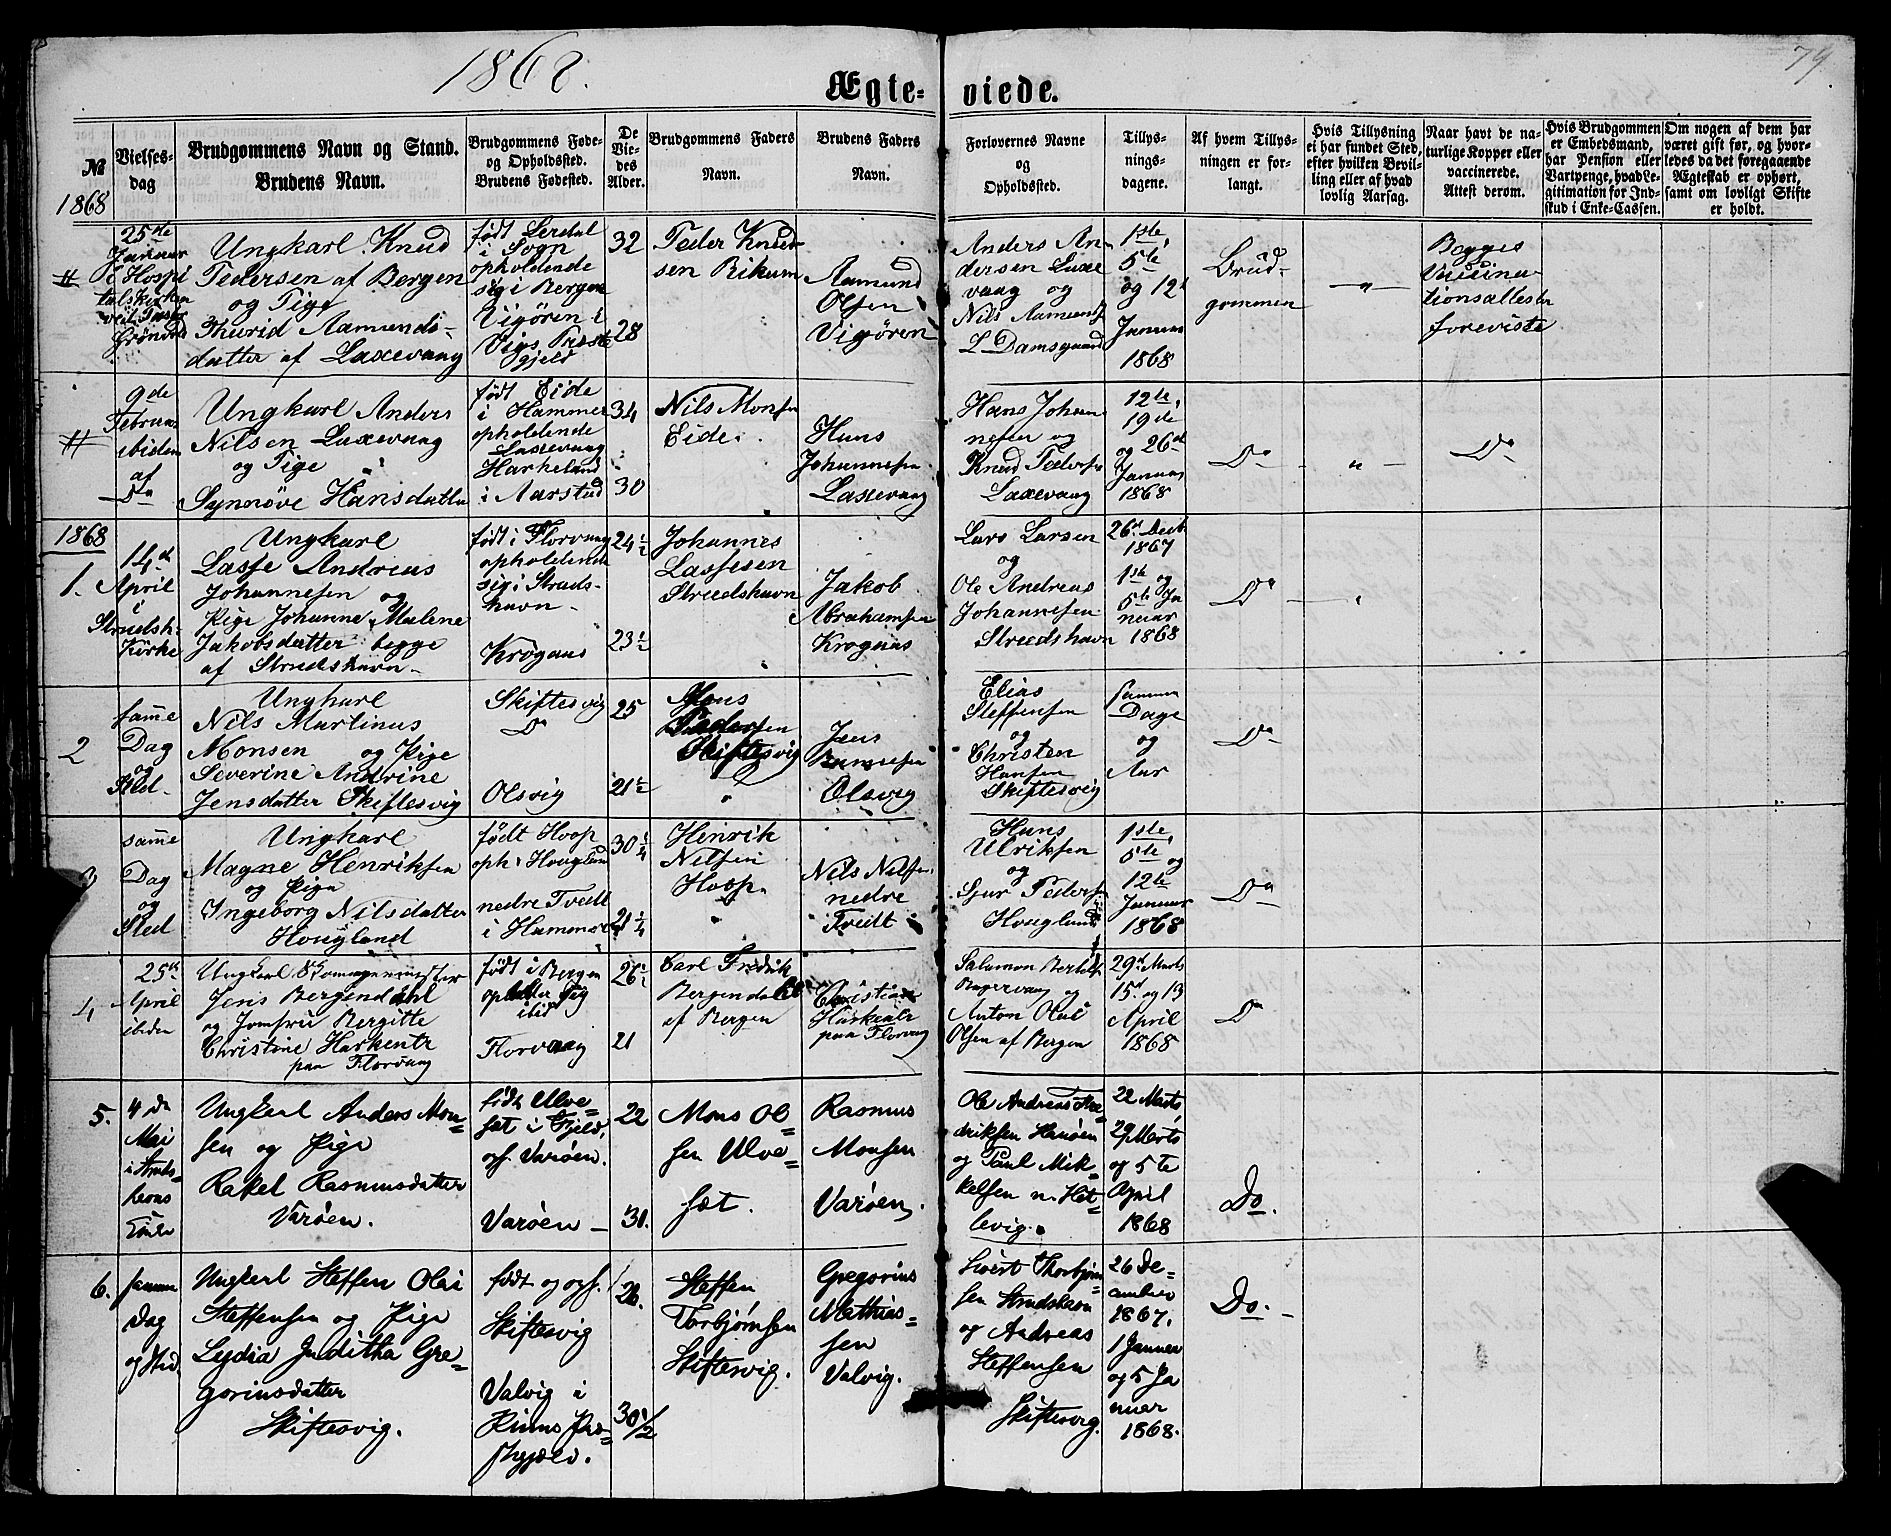 1868.
79
Ægte-
viede.
№
1868
Vielses-
dag
Brudgommens Navn og Stand.
Brudens Navn.
Brudgommens Føde-
og Opholdssted.
Brudens Fødested.
De
Vie-
des
Alder.
Brudgommens Faders
Navn.
Brudens Faders
Navn.
Forlovernes Navne
og
Opholdssted.
Tillys-
nings-
dagene.
Af hvem Tillys-
ningen er for-
langt.
Hvis Tillysning
ei har fundet Sted,
efter hvilken Bevil-
ling eller af hvad
lovlig Aarsag.
Naar havt de na-
turlige Kopper eller
vaccinerede.
Attest derom.
Hvis Brudgommen
er Embedsmand,
har Pension eller
Vartpenge, hvad Le-
gitimation for Ind-
skud i Enke-Cassen.
Om nogen af dem har
været gift før, og hvor-
ledes da det foregaaende
Ægteskab er ophørt,
samt om lovligt Skifte
er holdt.
#
25de
Januar
i Hospi
talskirken
Ungkarl Knud
Pedersen af Bergen
og Pige
Thurid Aamunds-
datter af Laxevaag
født Lerdal
i Sogn
opholdende
sig i Bergen
Vigøren i
Vigs Præste
gjeld
32
28
Peder Knud-
sen Rikum
Aamund
Olsen
Vigøren
Anders An-
dersen Laxe
vaag og
Nils Aamunds
L Damsgaard
1ste,
5te
og 12te
Januar
1868
Brud-
gommen
— " —
Begges
Vaccina-
tionsattester
foreviste
#
9de
Februar
ibidem
af
Do
Ungkarl Anders
Nilsen Laxevaag
og Pige
Synnöve Hansdatter
født Eide
i Hammer
opholdende
Laxevaag
Harkeland
i Aarstad
34
30
Nils Monsen
Eide.
Hans
Johannesen
Laxevaag
Hans Johan-
nesen og
Knud Pedersen
Laxevaag
12te,
19de
og 26de
Januar
1868
Do
— " —
Do
1868
1.
14de
April
i
Strudsh.
Kirke
Ungkarl
Lasse Andreas
Johannesen og
Pige Johanne Malene
Jakobsdatter begge
af Strudshavn
født i Florvaag
opholdende
sig i Struds-
havn
Krogaas
24½
23½
Johannes
Lassesen
Strudshavn
Jakob
Abrahamsen
Krogaas
Lars Larsen
og
Ole Andreas
Johannesen
Strudshavn
26de Decb.
1867
1ste og
5te Ja
nuar
1868
Do
2
samme
Dag
og
Sted
Ungkarl
Nils Martinus
Monsen og Pige
Severine Andrine
Jensdatter Skiftesvig
Skiftesvig
Do
Olsvig
25
21½
Mons
Pedersen
Skiftesvig
Jens
Hansesen
Olsvig
Elias
Steffensen
og
Christen
Hansen
Skiftesvig
samme
Dage
og
Aar
Do
3
samme
Dag
og
Sted
Ungkarl
Magne Henriksen
og Pige
Ingeborg Nilsdatter
Hougland
født Hoop
oph. Hougland
nedre Tvedt
i Hammer
30¼
21¼
Henrik
Nilsen
Hoop
Nils Nilsen
nedre
Tvedt
Hans
Ulriksen
og
Sjur Pedersen
Hougland
1ste,
5te og
12te
Januar
1868
Do
4
25de
April
ibidem
Jens Bergendahl
og Jomfru Bergitte
Christine Harkentz
paa Florvaag
født i Bergen
opholder sig
ibid
Florvaag
26½
21
Carl Fredrik
Bergendahl
af Bergen
Christian
Harkentz
paa Florvaag
Salamon Bertels
og
Anton Olai
Olsen af Bergen
29de Marts
15de og 13
April
1868
Do
5.
4de
Mai
i Struds-
havns
Kirke
Ungkarl Anders Mon-
sen og Pige
Rakel Rasmusdatter
Varøen.
født Ulve-
sæt i Fjeld,
oph. Varøen.
Varøen —
22
30.
Mons Ol-
sen Ulve-
sæt.
Rasmus
Monsen
Varøen.
Ole Andreas Fre-
driksen Hanøen
og Paul Mik-
kelsen n. Het-
levig.
22 Marts,
29 Marts
og 5te
April
1868
Do.
6.
samme
Dag
og Sted
Ungkarl Steffen Olai
Steffensen og Pige
Lydia Juditha Gre-
goriusdatter
Skiftesvig.
født og oph.
Skiftesvig
Valvig i
Kinns Præ-
stegjeld.
26.
30½
Steffen
Torbjørnsen
Skiftesvig.
Gregorius
Mathias-
sen
Valvig.
Sivert Thorbjørn-
sen Strudshavn
og Andreas
Steffensen
Skiftesvig.
26 De-
cember
1867.
1 Januar
og 5 Ja
nuar
1868.
Do. —